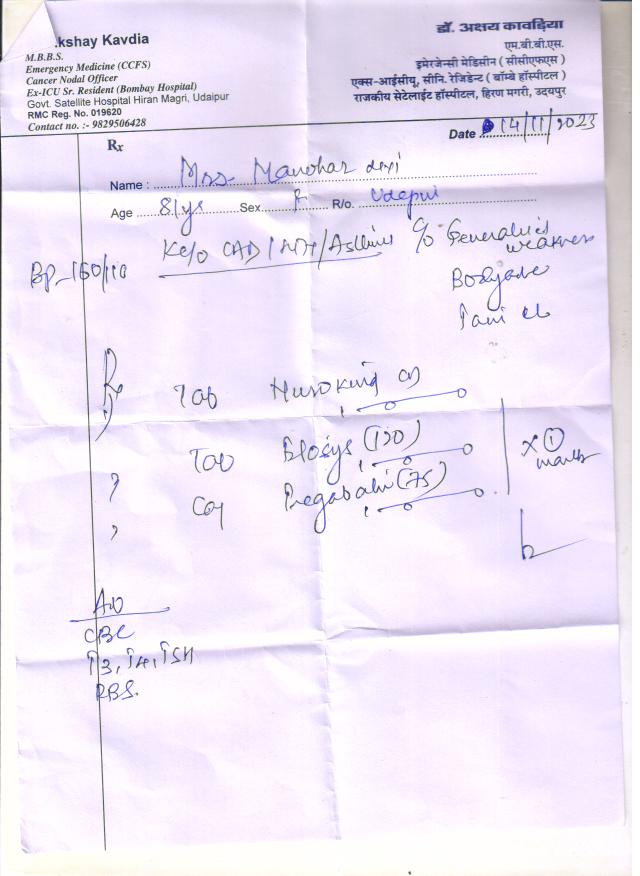 kshay Kavdia
M.B.B.S.
Emergency Medicine (CCFS)
Cancer Nodal Officer
Ex-ICU Sr. Resident (Bombay Hospital)
Govt. Satellite Hospital Hiran Magri, Udaipur
RMC Reg. No. 019620
Contact no. :- 9829506428
डॉ. अक्षय कावड़िया
एम.बी.बी.एस.
इमेरजेन्सी मेडिसीन ( सीसीएफएस )
एक्स-आईसीयू, सीनि. रेजिडेन्ट ( बॉम्बे हॉस्पीटल )
राजकीय सेटेलाईट हॉस्पीटल, हिरण मगरी, उदयपुर
Rx
Date 14/11/2023
Name : Mrs. Manohar devi
Age 81ys Sex F R/o.
BP 160/110
K/c/o CAD / / c/o Generalised
weakness
Bodyache
Rx Tab
1 0 0
Tab (120)
1 0 0
Cap Pregabalin (75)
1 0 0
x 1
month
Adv
CBC
T3, T4, TSH
RBS.